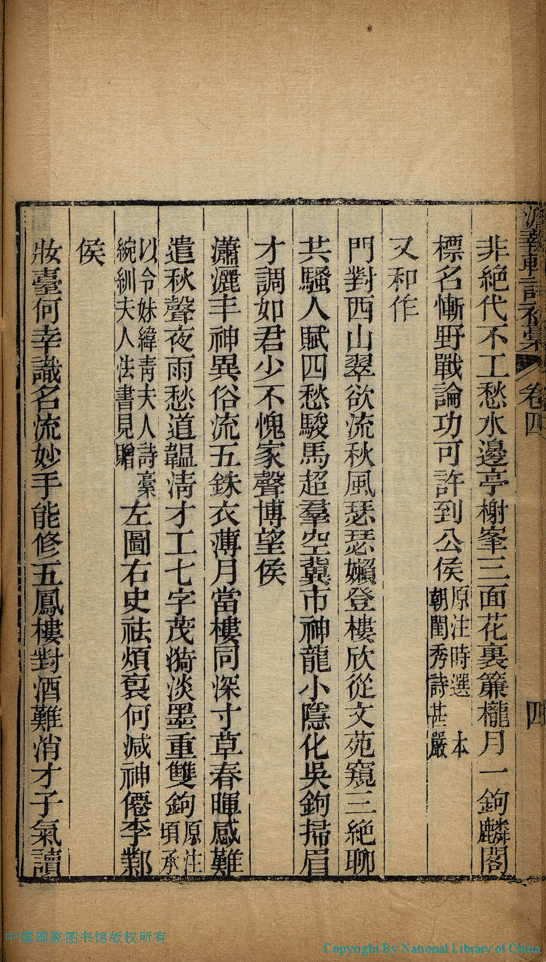 軒詩初集 卷四 四
非絕代不工愁水邊亭榭峯三面花裏簾櫳月一鉤麟閣
標名慚野戰論功可許到公侯原注時選本朝閨秀詩甚嚴
又和作
門對西山翠欲流秋風瑟瑟嬾登樓欣從文苑窺三絕聊
共騷人賦四愁駿馬超羣空冀市神龍小隱化吳鉤掃眉
才調如君少不愧家聲博望侯
瀟灑丰神異俗流五銖衣薄月當樓同深寸草春暉感難
遣秋聲夜雨愁道韞淸才工七字茂漪淡墨重雙鉤原注頃承
以令妹緯靑夫人詩稾綩紃夫人法書見贈左圖右史祛煩裒何減神僊李鄴
侯
妝臺何幸識名流妙手能修五鳳樓對酒難消才子氣讀
中国国家图书馆版权所有
Copyright By National Library of China